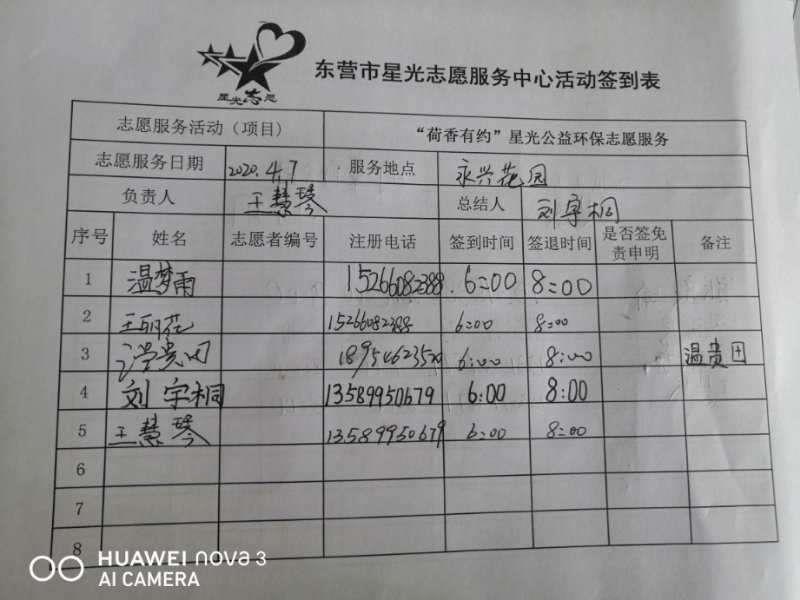 星光志愿
东营市星光志愿服务中心活动签到表
志愿服务活动（项目） “荷香有约”星光公益环保志愿服务
志愿服务日期 2020.4.7 服务地点 永兴花园
负责人 王慧琴 总结人 刘宇桐
序号 姓名 志愿者编号 注册电话 签到时间 签退时间 是否签免责申明 备注
1 温梦雨 15266082388 6:00 8:00
2 王丽花 15266082388 6:00 8:00
3 温贵田 6:00 8:00 温贵田
4 刘宇桐 13589950679 6:00 8:00
5 王慧琴 13589950679 6:00 8:00
6
7
8
HUAWEI nova 3
AI CAMERA